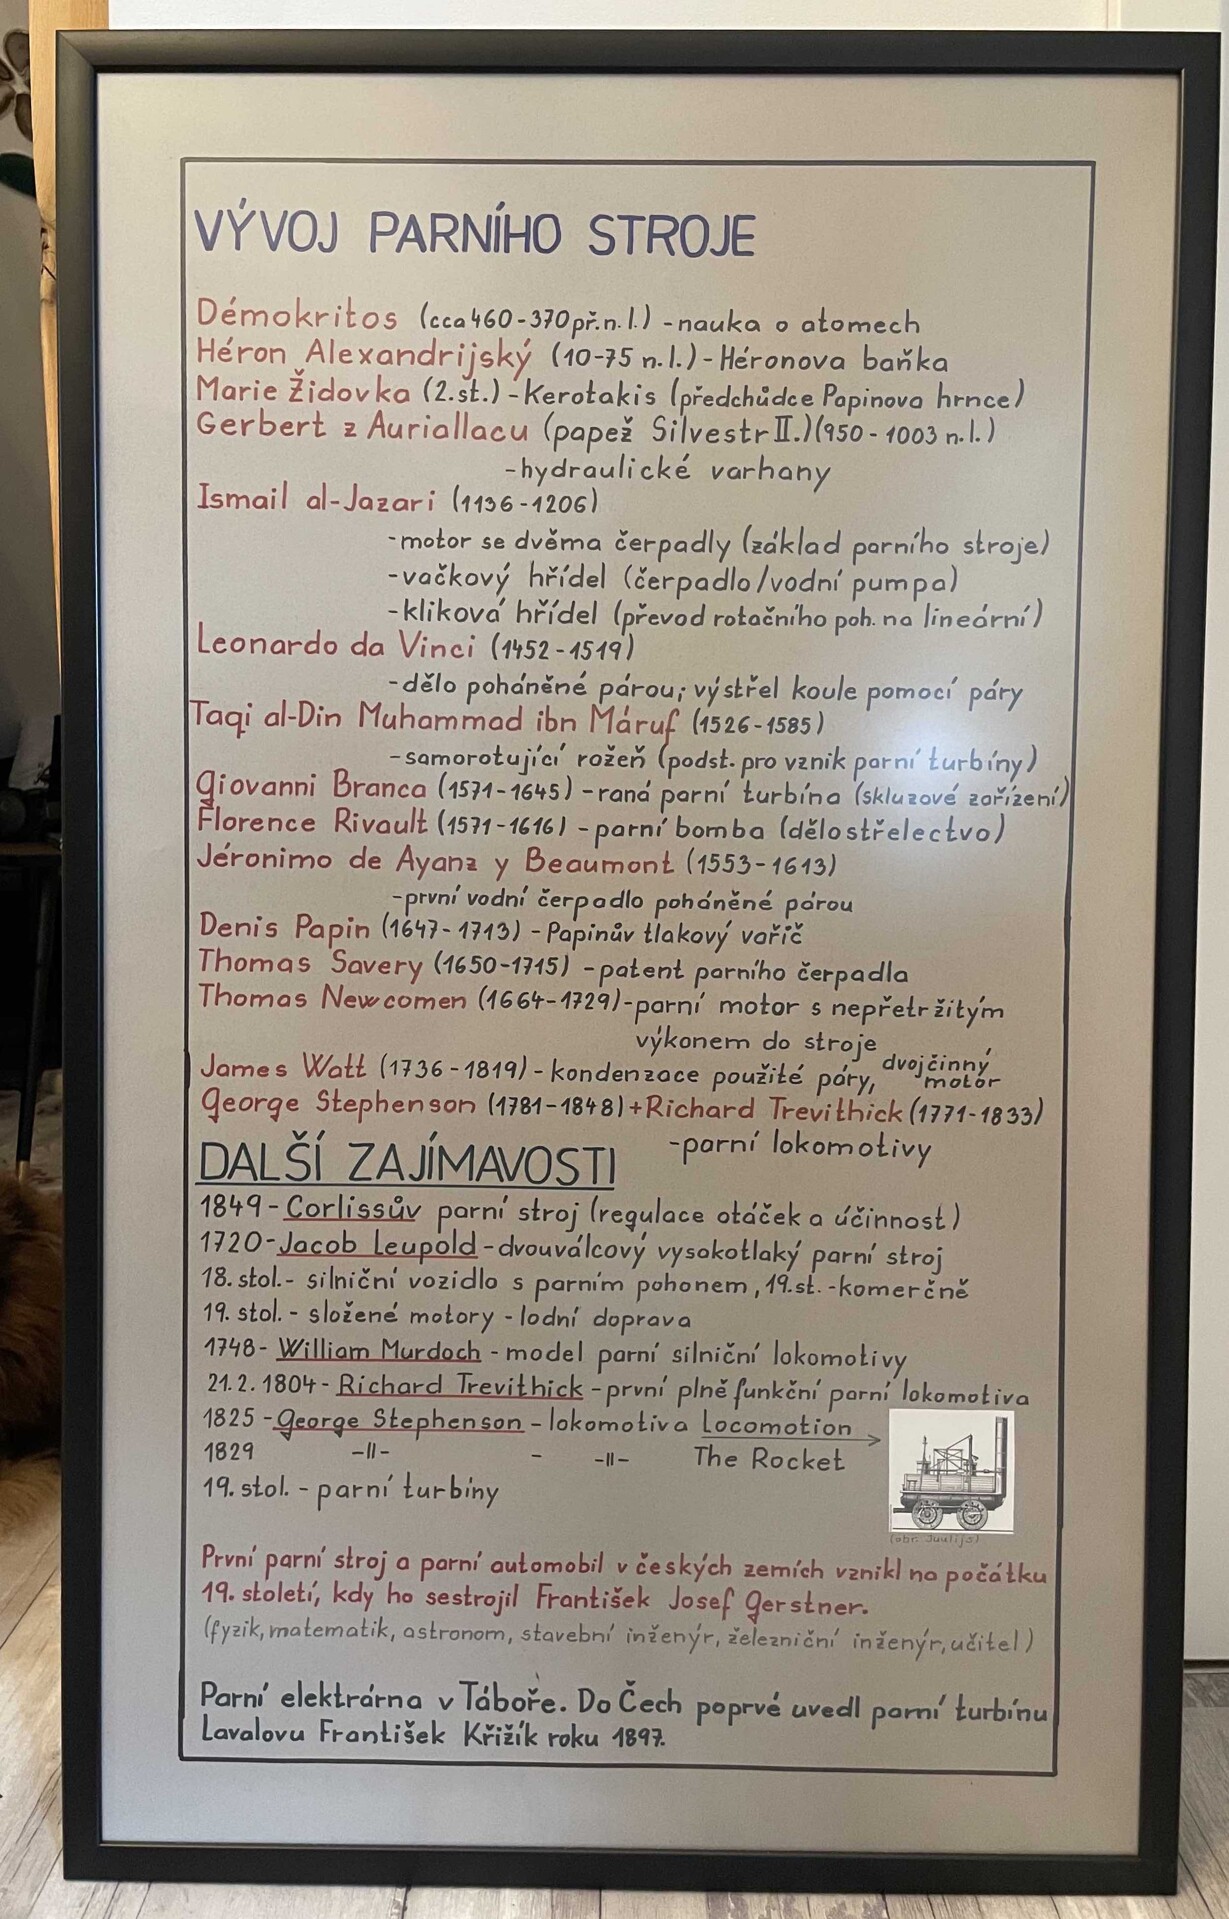 VÝVOJ PARNÍHO STROJE
Démokritos (cca 460-370 př. n. l.) - nauka o atomech
Héron Alexandrijský (10-75 n. l.) - Héronova baňka
Marie Židovka (2. st.) - Kerotakis (předchůdce Papinova hrnce)
Gerbert z Auriallacu (papež Silvestr II.) (950 - 1003 n. l.)
-hydraulické varhany
Ismail al-Jazari (1136-1206)
-motor se dvěma čerpadly (základ parního stroje)
-vačkový hřídel (čerpadlo/vodní pumpa)
-kliková hřídel (převod rotačního poh. na lineární)
Leonardo da Vinci (1452-1519)
-dělo poháněné párou; výstřel koule pomocí páry
Taqi al-Din Muhammad ibn Máruf (1526-1585)
-samorotující rožeň (podst. pro vznik parní turbíny)
Giovanni Branca (1571-1645) - raná parní turbína (skluzové zařízení)
Florence Rivault (1571-1616) - parní bomba (dělostřelectvo)
Jéronimo de Ayanz y Beaumont (1553-1613)
-první vodní čerpadlo poháněné párou
Denis Papin (1647-1713) - Papinův tlakový vařič
Thomas Savery (1650-1715) - patent parního čerpadla
Thomas Newcomen (1664-1729) - parní motor s nepřetržitým
výkonem do stroje
James Watt (1736-1819) - kondenzace použité páry, dvojčinný motor
George Stephenson (1781-1848) + Richard Trevithick (1771-1833)
-parní lokomotivy
DALŠÍ ZAJÍMAVOSTI
1849 - Corlissův parní stroj (regulace otáček a účinnost)
1720 - Jacob Leupold - dvouválcový vysokotlaký parní stroj
18. stol. - silniční vozidlo s parním pohonem, 19. st. - komerčně
19. stol. - složené motory - lodní doprava
1748 - William Murdoch - model parní silniční lokomotivy
21. 2. 1804 - Richard Trevithick - první plně funkční parní lokomotiva
1825 - George Stephenson - lokomotiva Locomotion
1829 -||- - -||- The Rocket
19. stol. - parní turbiny
(obr. Juulijs)
První parní stroj a parní automobil v českých zemích vznikl na počátku
19. století, kdy ho sestrojil František Josef Gerstner.
(fyzik, matematik, astronom, stavební inženýr, železniční inženýr, učitel)
Parní elektrárna v Táboře. Do Čech poprvé uvedl parní turbínu
Lavalovu František Křižík roku 1897.